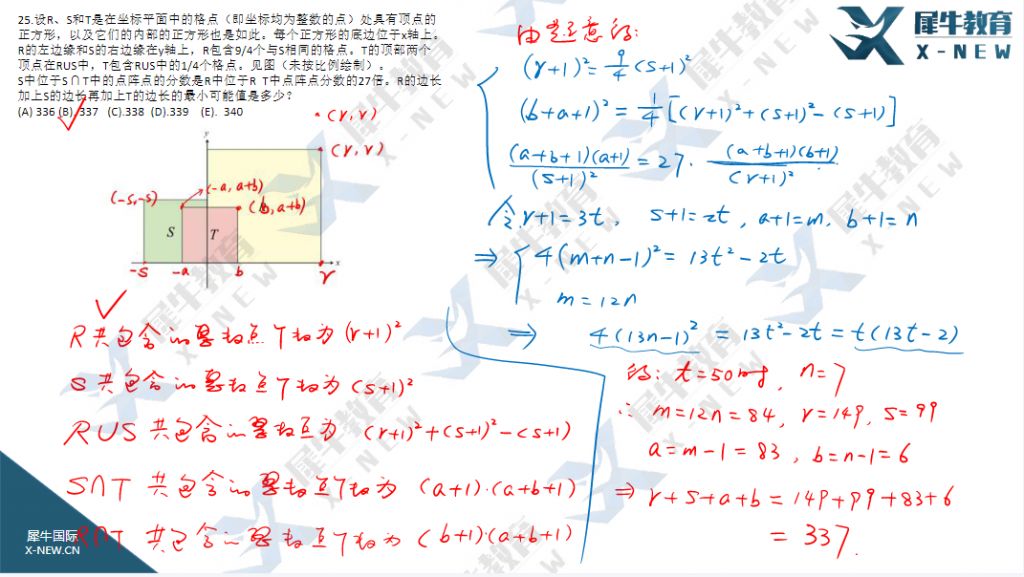 25.设R、S和T是在坐标平面中的格点（即坐标均为整数的点）处具有顶点的
正方形，以及它们的内部的正方形也是如此。每个正方形的底边位于x轴上。
R的左边缘和S的右边缘在y轴上，R包含9/4个与S相同的格点。T的顶部两个
顶点在RUS中，T包含RUS中的1/4个格点。见图（未按比例绘制）。
S中位于S∩T中的点阵点的分数是R中位于R T中点阵点分数的27倍。R的边长
加上S的边长再加上T的边长的最小可能值是多少？
(A) 336 (B) 337 (C).338 (D).339 (E). 340
(r, r)
y
(r, r)
(-a, a+b)
(-s,-s)
(b, a+b)
S
T
x
-s
-a
b
r
R共包含的ற点个数为 (r+1)²
S共包含的点个数为 (s+1)²
RUS 共包含的点为 (r+1)²+(s+1)²-(s+1)
S∩T 共包含的点个数为 (a+1)·(a+b+1)
R∩T 共包含的点个数为 (b+1)·(a+b+1)
由题意得:
(r+1)² = 9/4 (s+1)²
(b+a+1)² = 1/4 [(r+1)²+(s+1)²-(s+1)]
(a+b+1)(a+1)/(s+1)² = 27· (a+b+1)(b+1)/(r+1)²
令 r+1=3t, s+1=2t, a+1=m, b+1=n
⇒ 4(m+n-1)² = 13t²-2t
m=12n
⇒ 4(13n-1)² = 13t²-2t = t(13t-2)
得: t=50时, n=7
∴ m=12n=84, r=149, s=99
a=m-1=83, b=n-1=6
⇒ r+s+a+b=149+99+83+6
= 337.
犀牛教育
X-NEW
犀牛国际
X-NEW.CN